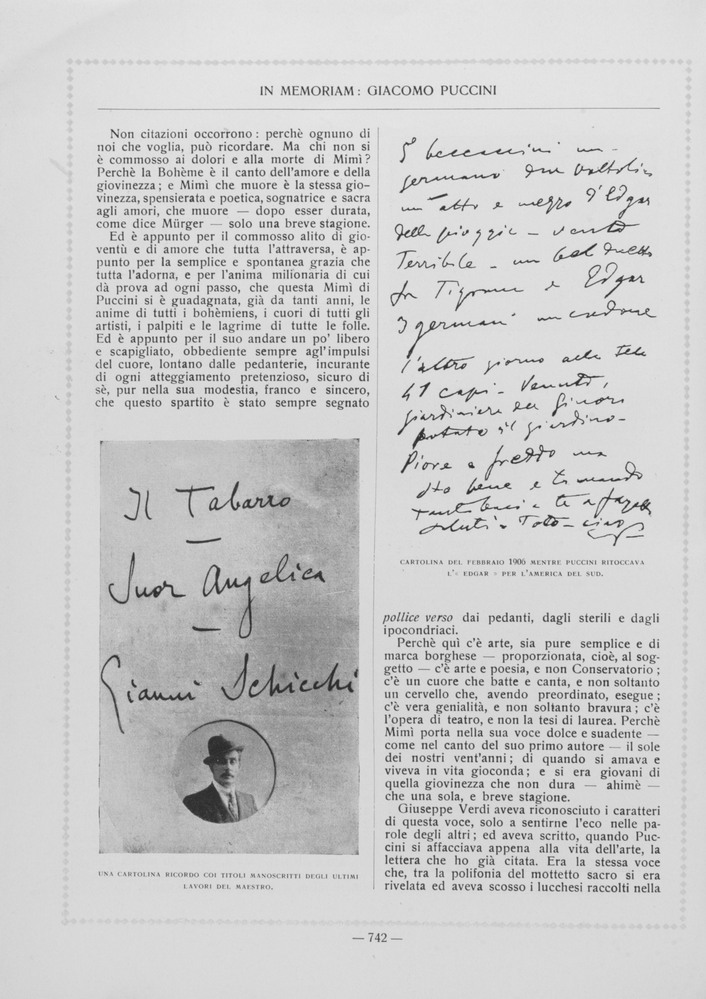 IN MEMORIAM: GIACOMO PUCCINI
Non citazioni occorrono : perchè ognuno di
noi che voglia, può ricordare. Ma chi non si
è commosso ai dolori e alla morte di Mimì ?
Perchè la Bohème è il canto dell'amore e della
giovinezza ; e Mimì che muore è la stessa gio-
vinezza, spensierata e poetica, sognatrice e sacra
agli amori, che muore — dopo esser durata,
come dice Mürger — solo una breve stagione.
Ed è appunto per il commosso alito di gio-
ventù e di amore che tutta l'attraversa, è ap-
punto per la semplice e spontanea grazia che
tutta l'adorna, e per l'anima milionaria di cui
dà prova ad ogni passo, che questa Mimì di
Puccini si è guadagnata, già da tanti anni, le
anime di tutti i bohèmiens, i cuori di tutti gli
artisti, i palpiti e le lagrime di tutte le folle.
Ed è appunto per il suo andare un po' libero
e scapigliato, obbediente sempre agl'impulsi
del cuore, lontano dalle pedanterie, incurante
di ogni atteggiamento pretenzioso, sicuro di
sè, pur nella sua modestia, franco e sincero,
che questo spartito è stato sempre segnato
Il Tabarro
Suor Angelica
Gianni Schicchi
UNA CARTOLINA RICORDO COI TITOLI MANOSCRITTI DEGLI ULTIMI
LAVORI DEL MAESTRO.
5 beccaccini un
germano due
un atto e mezzo d'Edgar
della pioggia - vento
Terribile - un bel duetto
fra Tigrana e Edgar
3 germani
l'altro giorno alla tela
41 capi - Venuto,
giardiniere da Ginori
potato il giardino -
Piove e freddo ma
sto bene e ti mando
tanti baci e te
saluti a Totò - ciao
CARTOLINA DEL FEBBRAIO 1906 MENTRE PUCCINI RITOCCAVA
L'« EDGAR » PER L'AMERICA DEL SUD.
pollice verso dai pedanti, dagli sterili e dagli
ipocondriaci.
Perchè quì c'è arte, sia pure semplice e di
marca borghese — proporzionata, cioè, al sog-
getto — c'è arte e poesia, e non Conservatorio ;
c'è un cuore che batte e canta, e non soltanto
un cervello che, avendo preordinato, esegue ;
c'è vera genialità, e non soltanto bravura ; c'è
l'opera di teatro, e non la tesi di laurea. Perchè
Mimì porta nella sua voce dolce e suadente —
come nel canto del suo primo autore — il sole
dei nostri vent'anni ; di quando si amava e
viveva in vita gioconda ; e si era giovani di
quella giovinezza che non dura — ahimè —
che una sola, e breve stagione.
Giuseppe Verdi aveva riconosciuto i caratteri
di questa voce, solo a sentirne l'eco nelle pa-
role degli altri ; ed aveva scritto, quando Puc-
cini si affacciava appena alla vita dell'arte, la
lettera che ho già citata. Era la stessa voce
che, tra la polifonia del mottetto sacro si era
rivelata ed aveva scosso i lucchesi raccolti nella
— 742 —